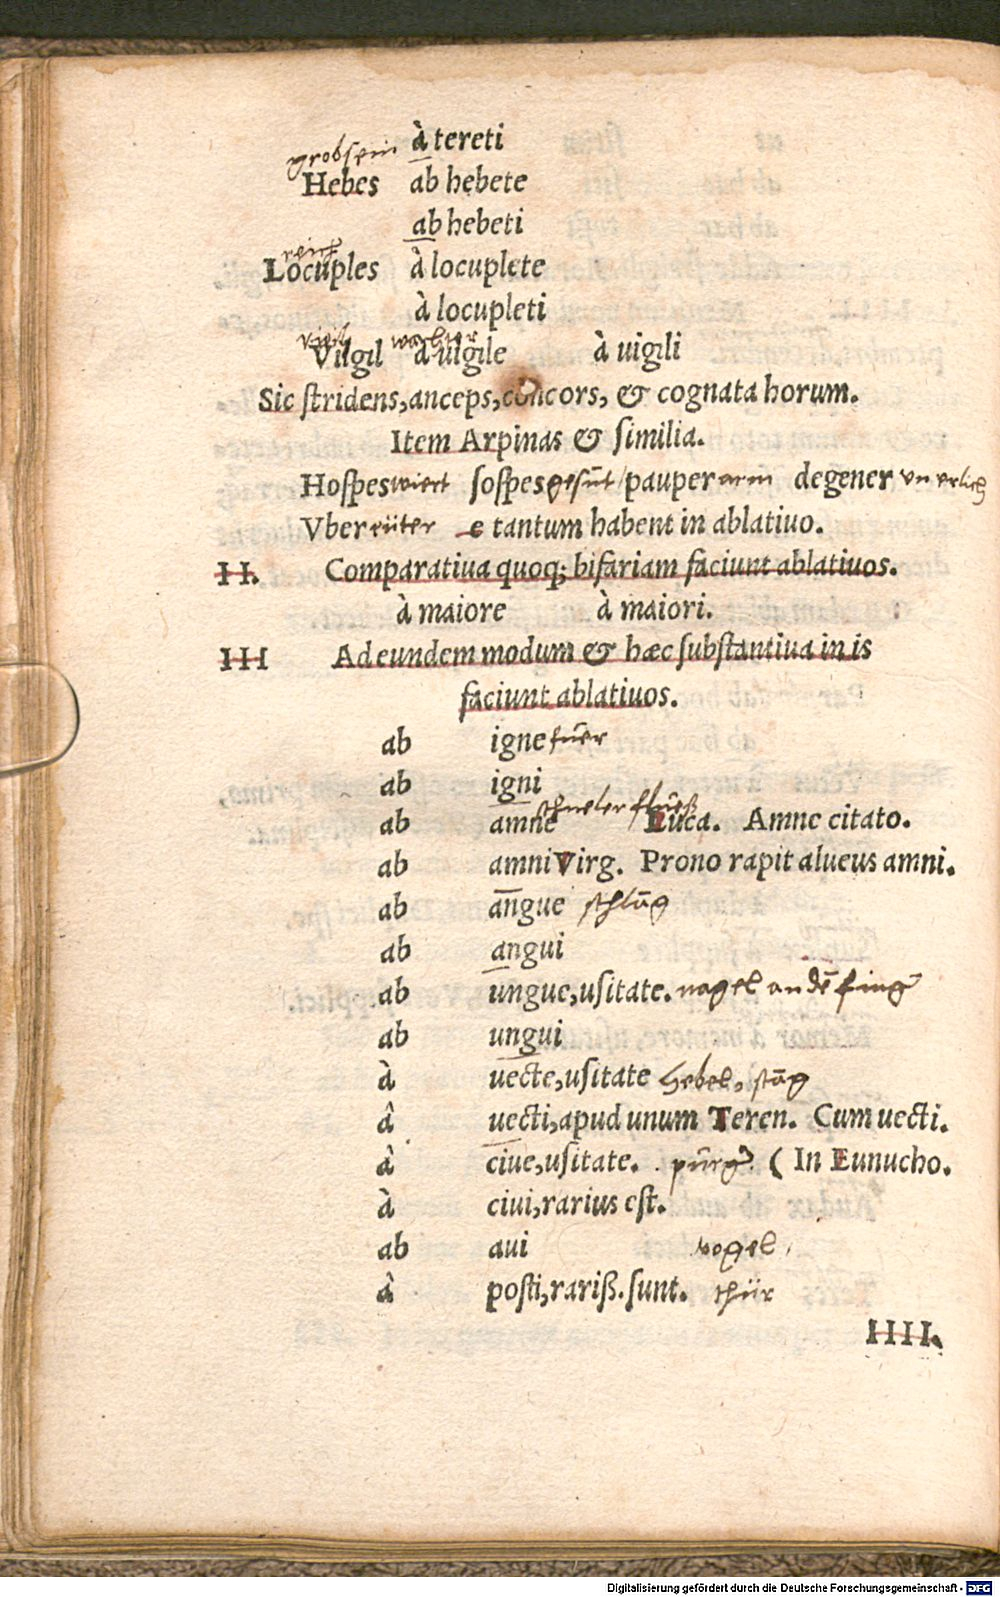 à tereti
grobsein
Hebes ab hebete
ab hebeti
Locuples à locuplete
à locupleti
Vigil à uigile à uigili
Sic stridens, anceps, concors, & cognata horum.
Item Arpinas & similia.
Hospes wiert sospes gesūt / pauper arm degener vn erlich
Vber eüter e tantum habent in ablatiuo.
II. Comparatiua quoq; bifariam faciunt ablatiuos.
à maiore à maiori.
III Ad eundem modum & hæc substantiua in is
faciunt ablatiuos.
ab igne fūer
ab igni
schneler flüeß
ab amne Luca. Amne citato.
ab amni Virg. Prono rapit alueus amni.
ab angue schlāg
ab angui
ab ungue, usitate. nagel an dē fing
ab ungui
à uecte, usitate hebel, stāg
â uecti, apud unum Teren. Cum uecti.
à ciue, usitate. pūrg (In Eunucho.
à ciui, rarius est.
ab aui vogel,
â posti, rariß. sunt. thür
IIII.
Digitalisierung gefördert durch die Deutsche Forschungsgemeinschaft - DFG